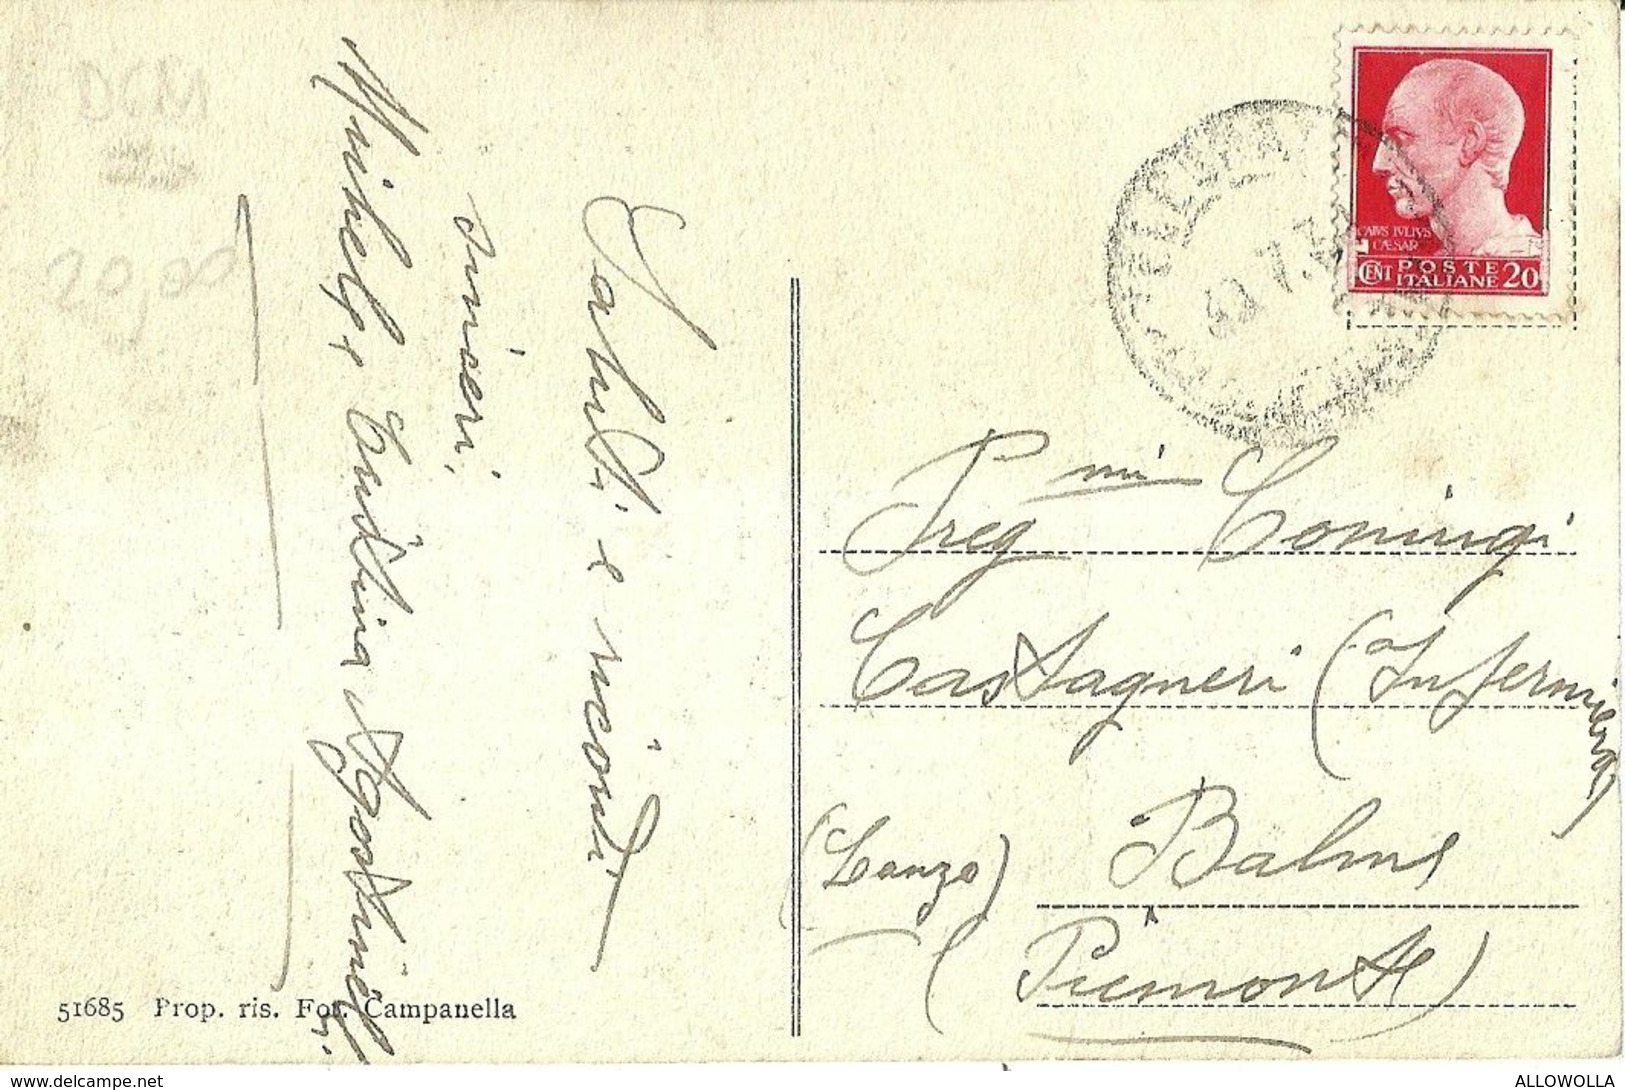 DCM
20,00
Saluti e ricordi
sinceri,
Michele e Ersilina Agostinelli
CAIVS IVLIVS
CAESAR
CENT POSTE
ITALIANE 20
Preg mi Coniugi
Castagneri (Infermiera)
(Lanzo) Balme
(Piemonte)
51685 Prop. ris. Fot. Campanella
www.delcampe.net
ALLOWOLLA